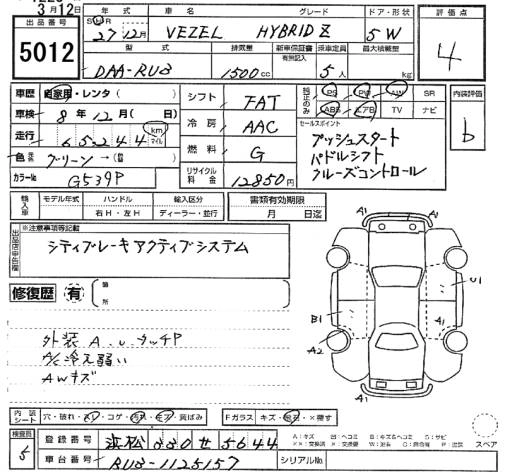 3月12日
出品番号 年式 車名 グレード ドア・形状 評価点
5012 27年12月 VEZEL HYBRID Z 5W 4
型式 排気量 新車保証書 有無記入 乗車定員 最大積載量
DAA-RU3 1500cc 5人 kg
車歴 自家用・レンタ( ) シフト FAT 純正のみ PS PW AW SR 内装評価
ABS エアB TV ナビ
車検 8年12月( 日) 冷房 AAC セールスポイント b
走行 65244 km マイル プッシュスタート
色 グリーン→( ) 燃料 G パドルシフト
カラーNo G539P リサイクル料金 12850円 クルーズコントロール
輸入車 モデル年式 ハンドル 輸入区分 書類有効期限
右H・左H ディーラー・並行 月 日迄
出品店申告欄 ※注意事項等記載
シティブレーキアクティブシステム
修復歴 有 箇所
A1 A1
U1
B1
A2 A1
A1
外装 A.UタッチP
A/C冷え弱い
AWキズ
内装シート 穴・破れ・スリ・コゲ・汚れ・キズ・黄ばみ Fガラス キズ・飛石・×積す
検査員 5 登録番号 浜松 330 せ 5644
車台番号 RU3-1125157 シリアルNo
A:キズ U:ヘコミ B:キズ&ヘコミ S:サビ
スペア